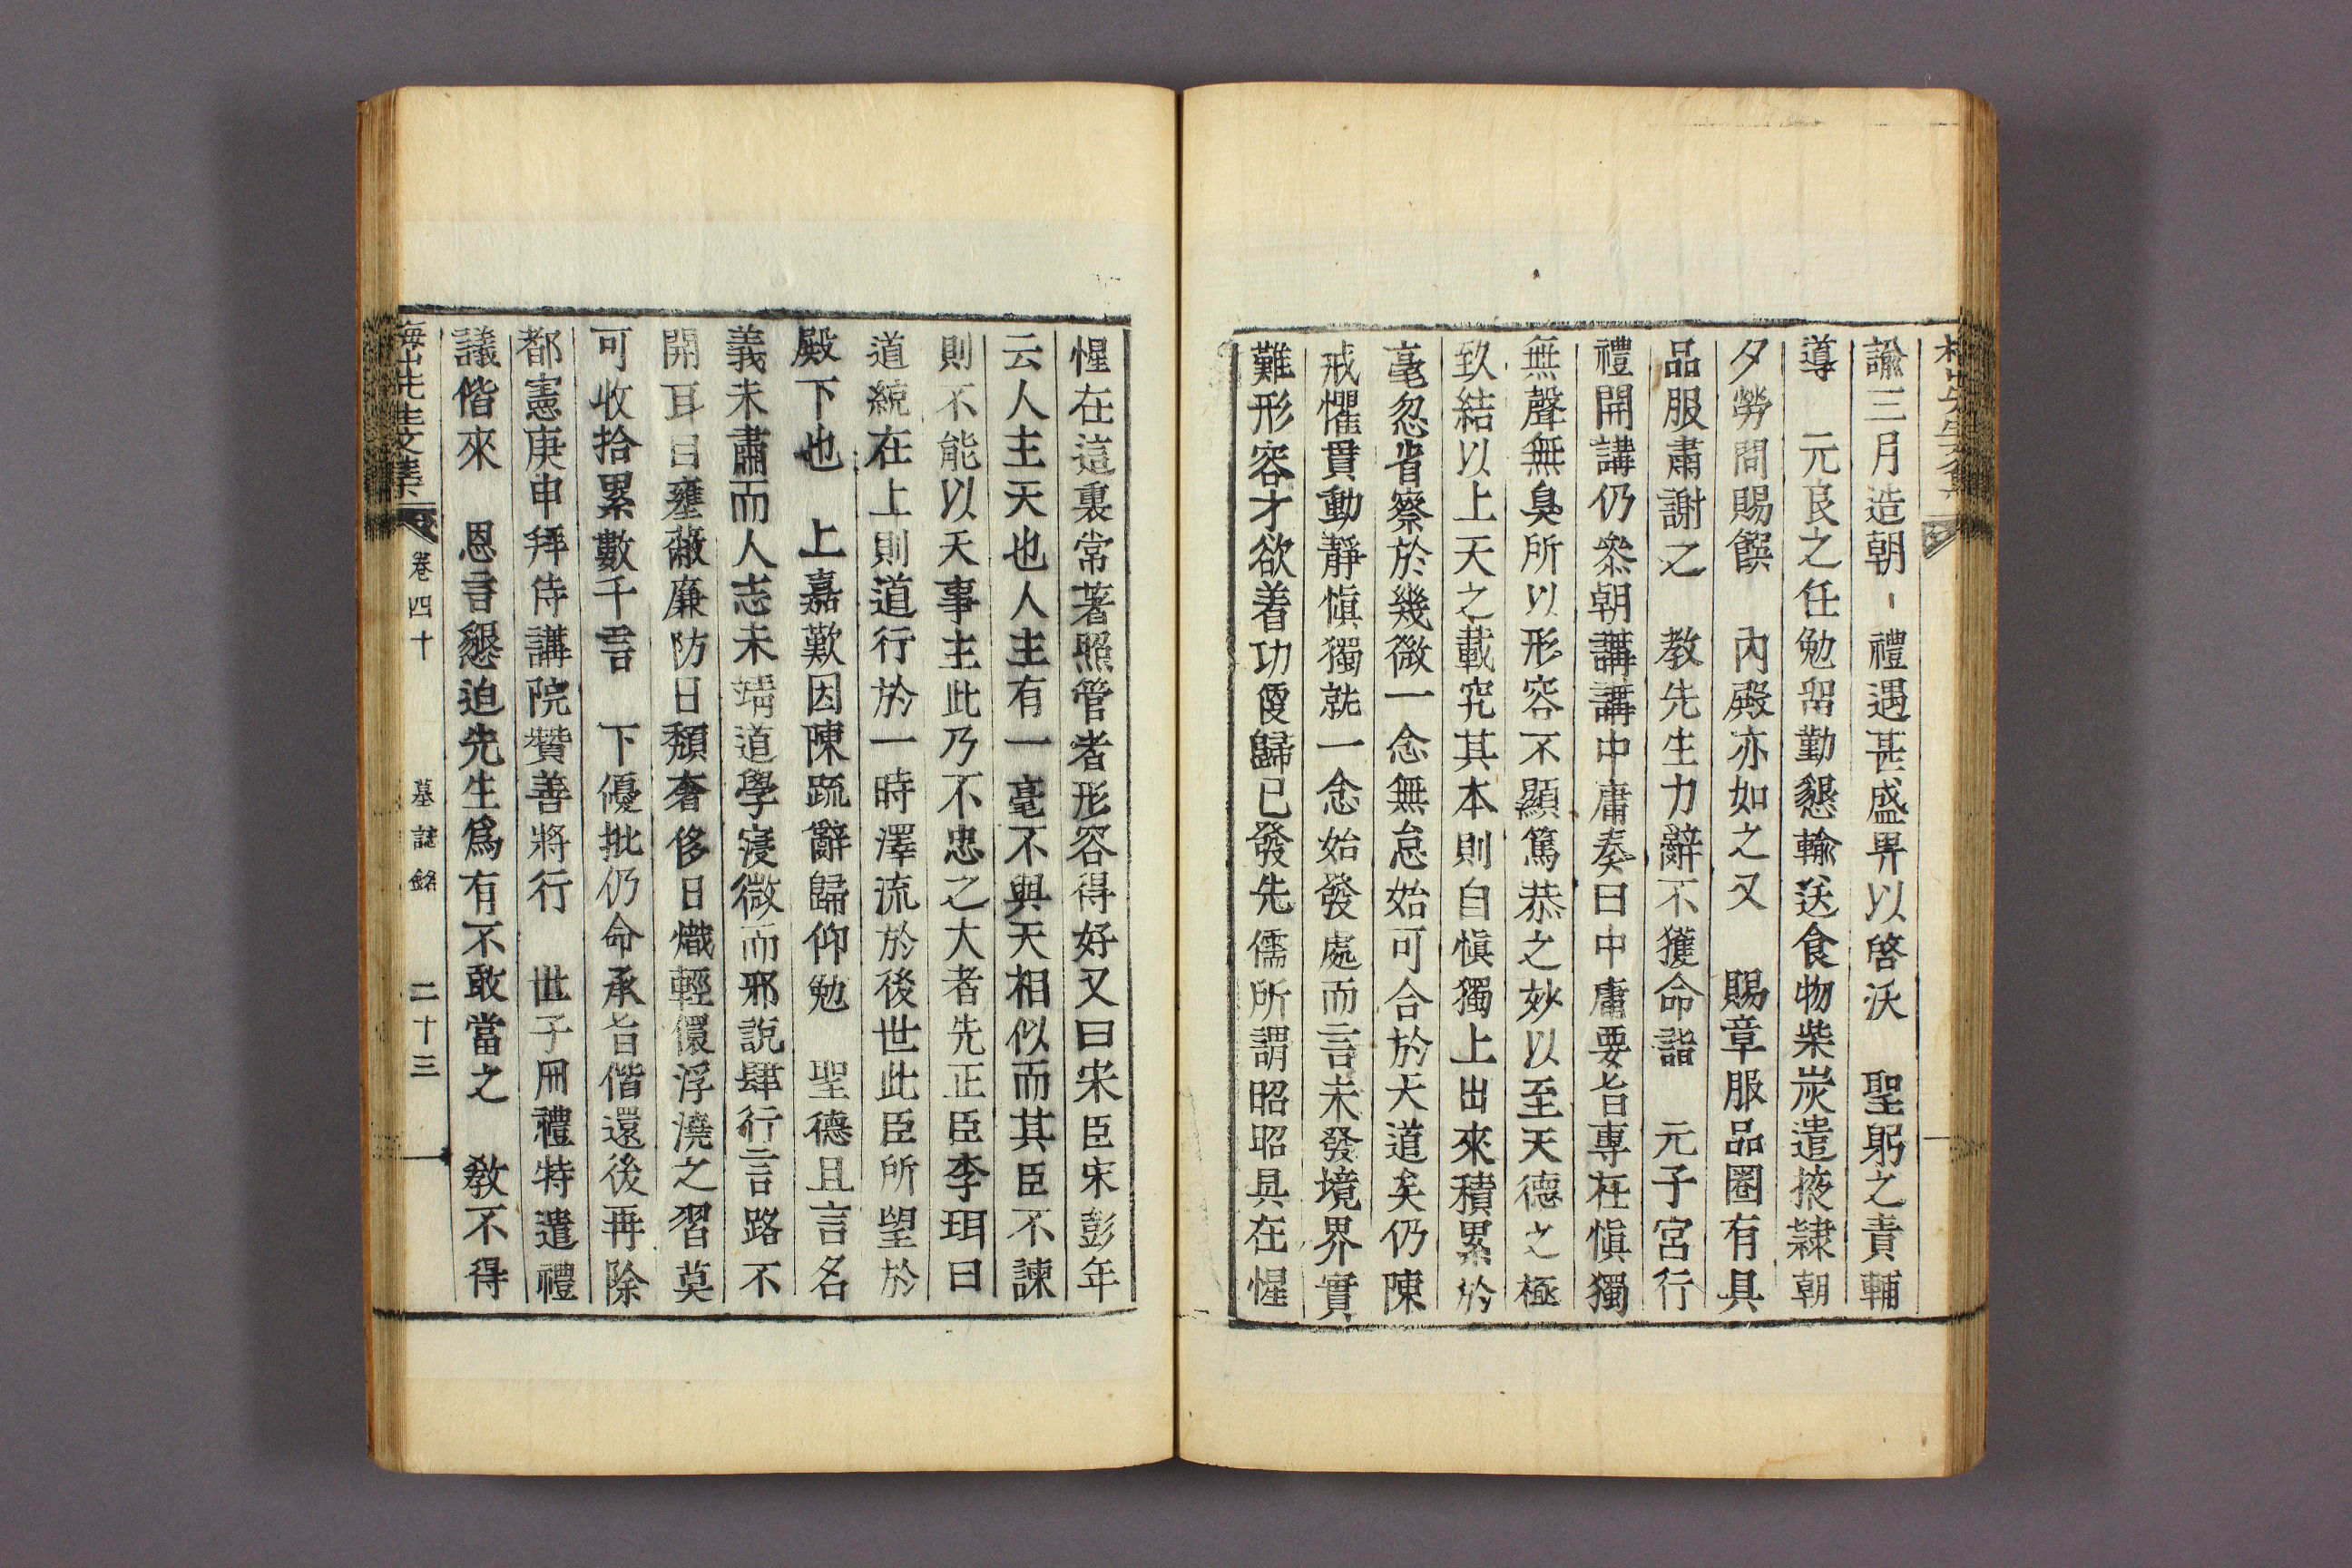 諭三月造朝 禮遇甚盛畀以啓沃 聖躬之責輔
導 元良之任勉留勤懇輸送食物柴炭遣掖隷朝
夕勞問賜饌 內殿亦如之又 賜章服品圈有具
品服肅謝之 敎先生力辭不獲命詣 元子宮行
禮開講仍叅朝講講中庸奏曰中庸要旨專在愼獨
無聲無臭所以形容不顯篤恭之妙以至天德之極
致結以上天之載究其本則自愼獨上出來積累於
毫忽省察於幾微一念無怠始可合於天道矣仍陳
戒懼貫動靜愼獨就一念始發處而言未發境界實
難形容才欲着功便歸已發先儒所謂昭昭具在惺
惺在這裏常著照管者形容得好又曰宋臣宋彭年
云人主天也人主有一毫不與天相似而其臣不諫
則不能以天事主此乃不忠之大者先正臣李珥曰
道統在上則道行於一時澤流於後世此臣所望於
殿下也 上嘉歎因陳疏辭歸仰勉 聖德且言名
義未肅而人志未靖道學寖微而邪說肆行言路不
開耳目壅蔽廉防日頹奢侈日熾輕儇浮澆之習莫
可收拾累數千言 下優批仍命承旨偕還後再除
都憲庚申拜侍講院贊善將行 世子冊禮特遣禮
議偕來 恩言懇迫先生爲有不敢當之 敎不得
梅山先生文集 卷四十 墓誌銘 二十三